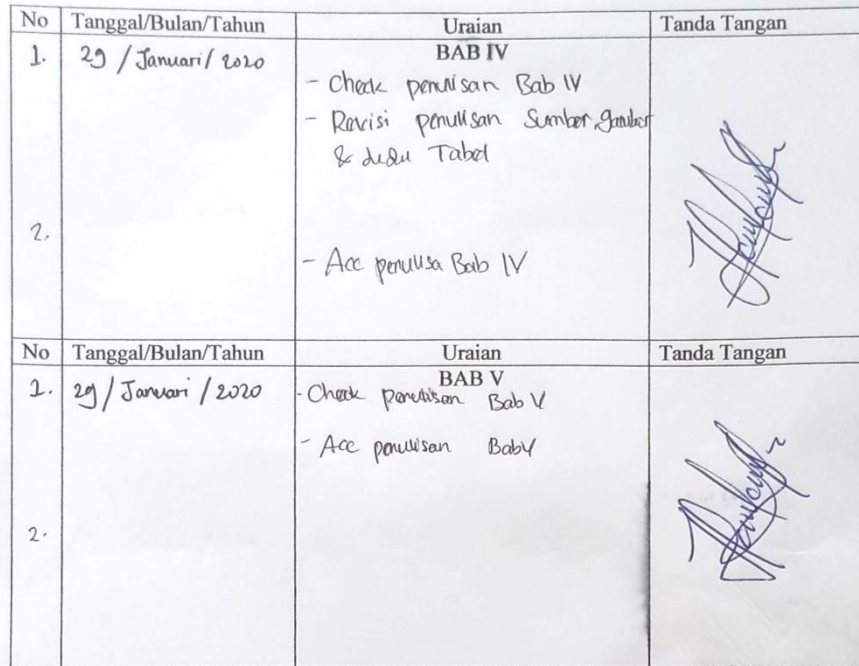 No Tanggal/Bulan/Tahun Uraian Tanda Tangan
BAB IV
1. 29 / Januari / 2020 - Check penulisan Bab IV
- Revisi penulisan Sumber, gambar
& Tabel
2.
- Acc penulisa Bab IV
No Tanggal/Bulan/Tahun Uraian Tanda Tangan
BAB V
1. 29 / Januari / 2020 - Check penulisan Bab V
- Acc penulisan Bab V
2.